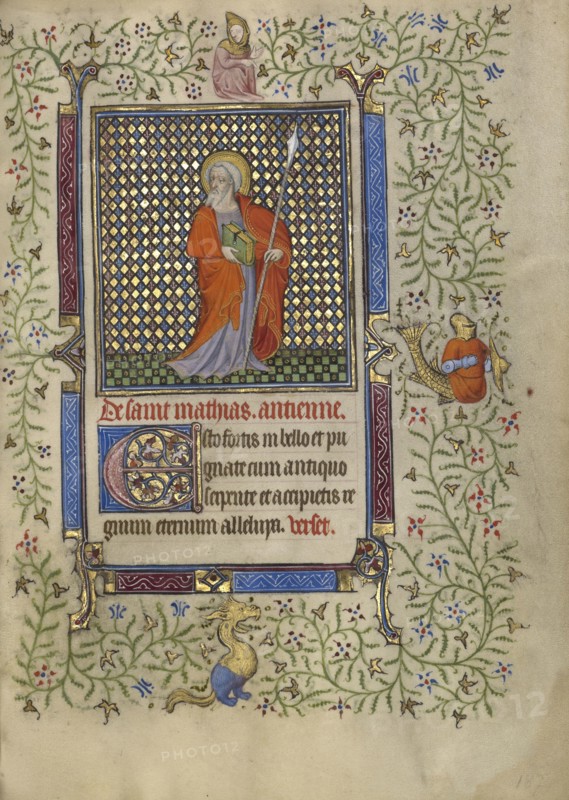 De saint mathias. antienne.
Esto fortis in bello et pu
gnate cum antiquo
serpente et accipietis re
gnum eternum alleluya. verset.
PHOTO12
PHOTO12
PHOTO12
PHOTO12